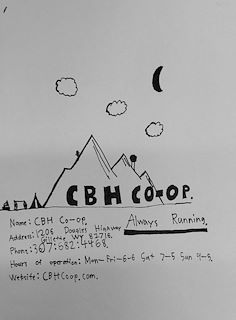 CBH CO-OP.
Always Running.
Name: CBH Co-op.
Address: 1206 Douglas Highway
Gillette, WY. 82716.
Phone: 307.682.4468.
Hours of operation: Mon-Fri-6-6 Sat 7-5 Sun 9-5.
Website: CBHCoop.com.